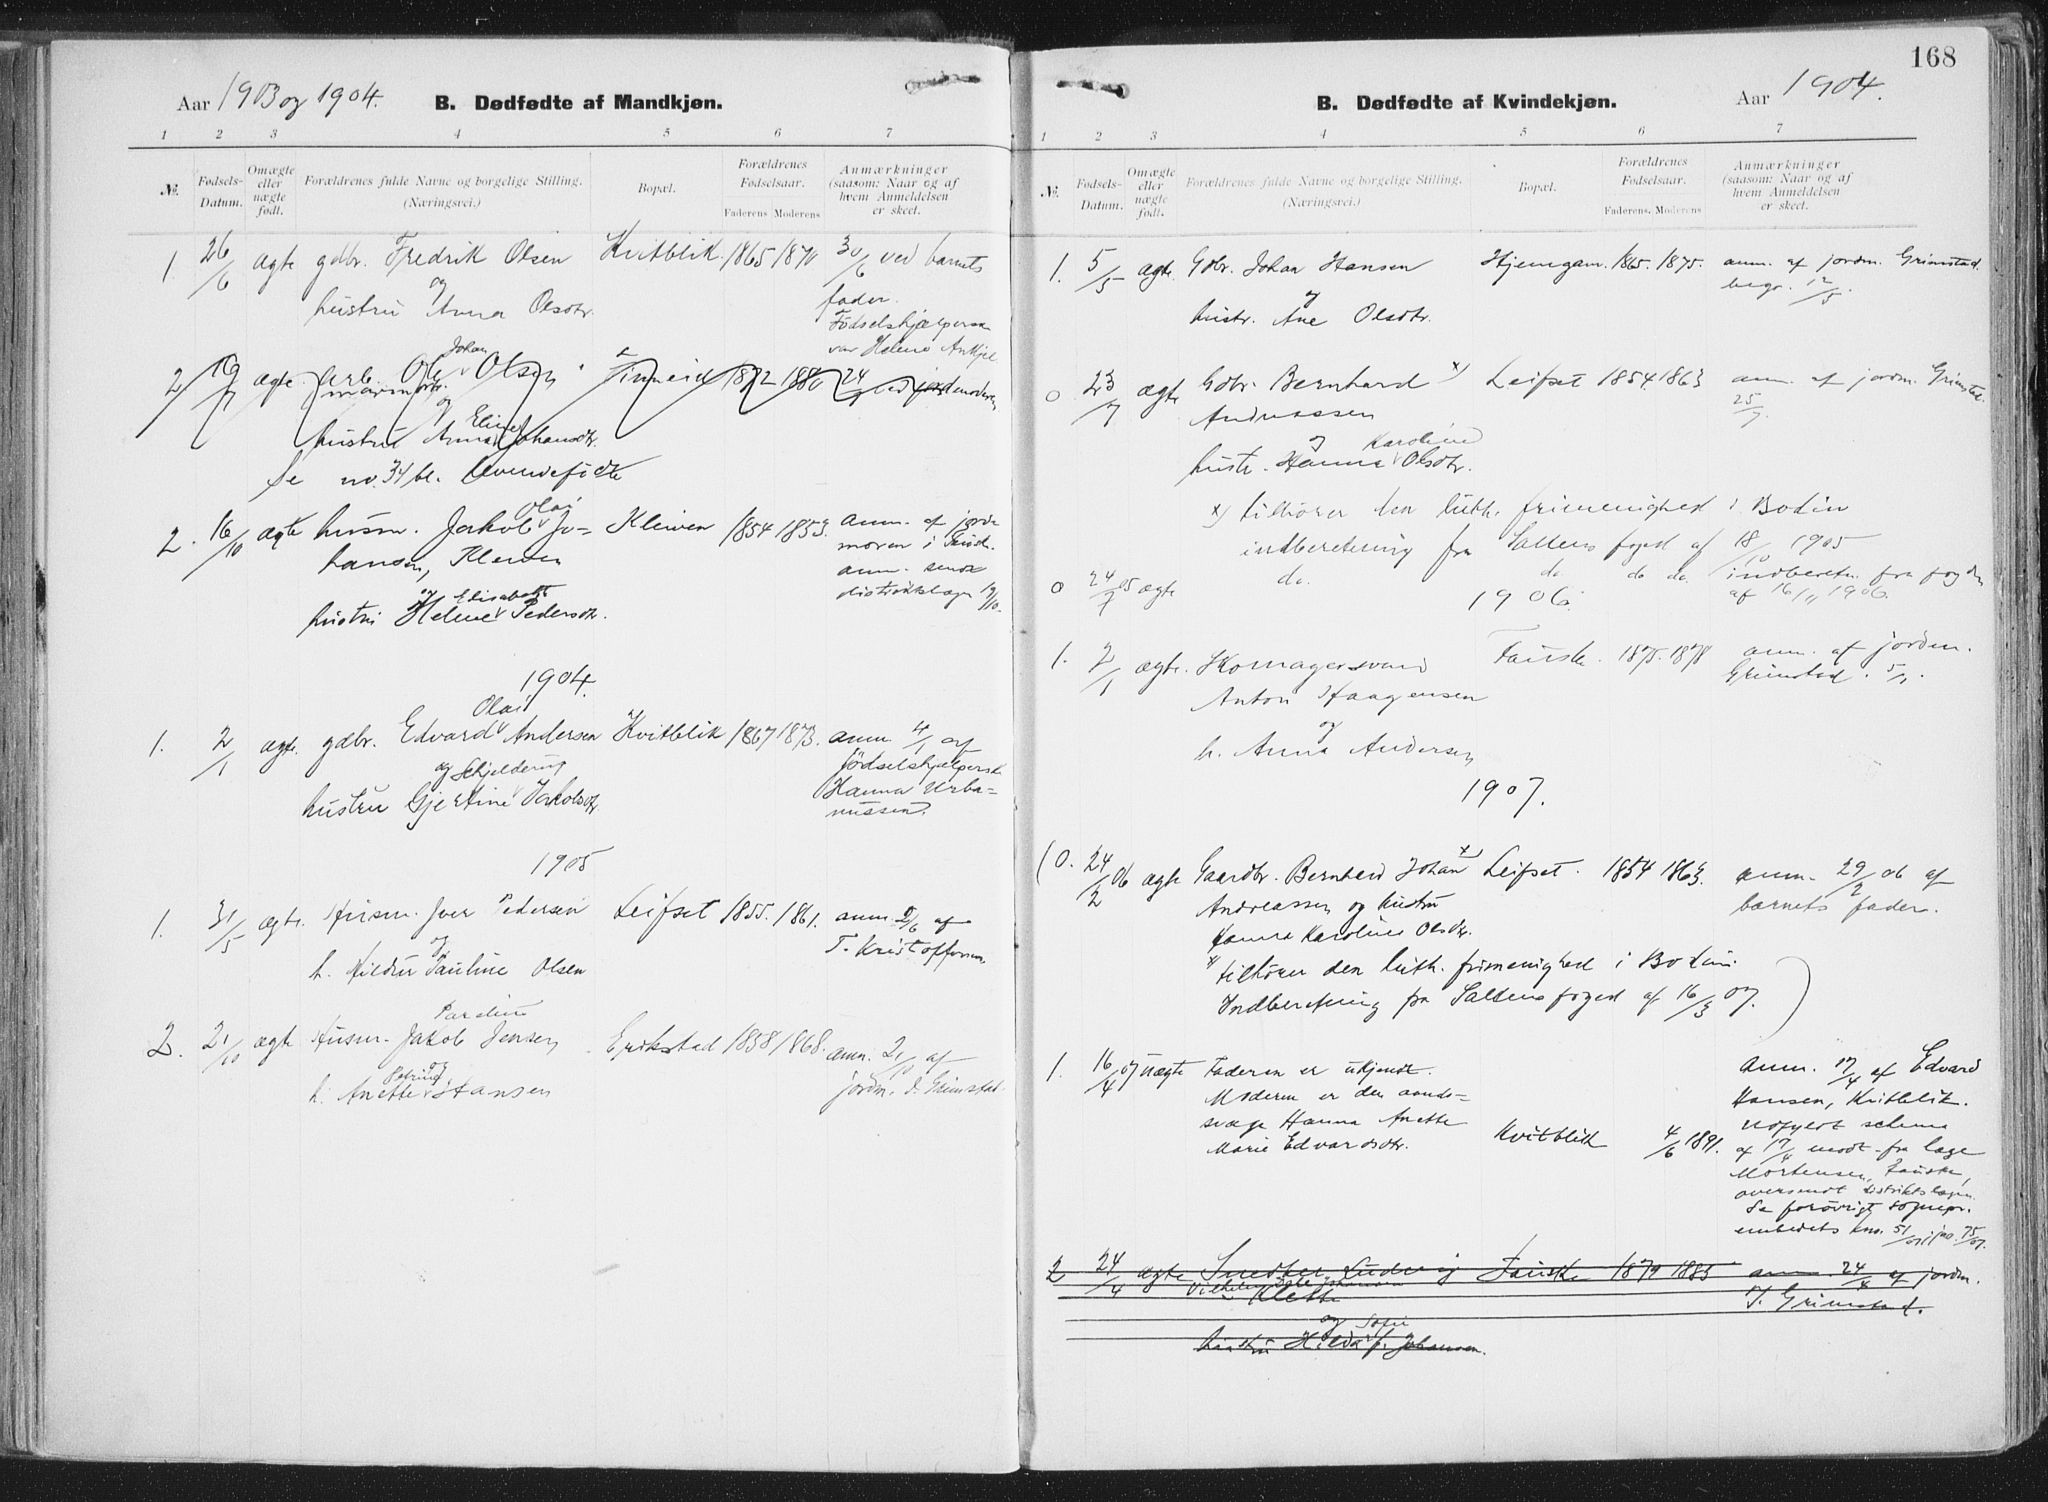 Aar 1903 og 1904.
B. Dødfødte af Mandkjøn.
1 2 3 4 5 6 7
№. Fødsels-Datum. Omægte eller nægte født. Forældrenes fulde Navne og borgelige Stilling. (Næringsvei.) Bopæl. Forældrenes Fødselsaar. Faderens Moderens Anmærkninger (saasom: Naar og af hvem Anmeldelsen er skeet.
1. 26/6 ægte gdbr. Fredrik Olsen Kvitblik 1865 30/6 ved barnets
og
hustru Anna Olsdtr. fader.
Fødselshjælperske
var Helene
Johan
2 ægte arb. Ole Olsen Finneid 1872 1880 24
og Eline
hustru Anna Johansdtr.
Se no. 34 bl. levendefødte
Olai
2. 16/10 ægte husm. Jakob Jo- Kleiven 1854 1853. anm. af jorde
hansen, Kleiven moren i Fauske.
anm. sendt
og Elisabeth distriktslægen 19/10.
hustru Helene Pedersdtr.
1904.
Olai
1. 2/1 ægte. gdbr. Edvard Andersen Kvitblik 1867 1873. anm. 4/1 af
og Schjelderup fødselshjælperske
hustru Gjertine Jakobsdtr. Hanna Urba-
nussen.
1905
1. 31/5 ægte. Husm. Iver Pedersen Leifset 1855. 1861. anm. 2/6 af
og T. Kristoffersen
h. Hildur Pauline Olsen
2. 21/10 ægte Husm. Jakob Jensen Erikstad 1858 1868. anm. 21/10 af
Petrine og jordm. Grimstad
h. Anette Hansen
168
B. Dødfødte af Kvindekjøn.
Aar 1904.
1 2 3 4 5 6 7
№. Fødsels-Datum. Omægte eller nægte født. Forældrenes fulde Navne og borgelige Stilling. (Næringsvei.) Bopæl. Forældrenes Fødselsaar. Faderens. Moderens Anmærkninger (saasom: Naar og af hvem Anmeldelsen er skeet.
1. 5/5 ægte. Gdbr. Johan Hansen Hjemgam. 1865. 1875. anm. af jordm. Grimstad.
og begr. 12/5.
hustr. Ane Olsdtr.
0 23/7 ægte Gdbr. Bernhard x) Leifset 1854 1863 anm. af jordm. Grimstad.
Andreassen 25/7.
og Karoline
hustr. Hanna Olsdtr.
x) tilhører den luth. frimenighed i Bodin
indberetning fra Saltens foged af 18/10 1905
0 24/7 05 ægte do. do do do. indberetn. fra fogden
1906. af 16/11 1906.
1. 2/1 ægte. Komagersvend Fauske. 1875. 1878 anm. af jordm.
Anton Haagensen Grimstad. 5/1.
og
h. Anna Andersen
1907.
(0. 24/2 06 ægte Gaardbr. Bernhard Johan x) Leifset. 1854 1863. anm. 29/2 06 af
Andreassen og hustru barnets fader.
Hanna Karoline Olsdtr.
x tilhører den luth. frimenighed i Bodin.
Indberetning fra Saltens foged af 16/3 07. )
1. 16/4 07 uægte Faderen er ukjendt. anm. 17/4 af Edvard
Moderen er den aands- Hansen, Kvitblik.
svage Hanna Anette Udfyldt schema
Marie Edvardsdtr. Kvitblik 4/6 1891. af 17/4 modt. fra læge
Mortensen, Fauske,
oversendt distriktslægen.
Se forøvrigt sognepr.
embedets kno. 51/07, jno. 75/07.
2 24/4 ægte Snedker Ludvig Fauske 1879 1885 anm. 24/4 af jordm.
Klette T. Grimstad.
og Sofie
hustru Hilda f. Johansen.